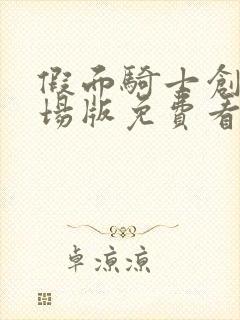 假面騎士創
場版免費看
卓涼涼